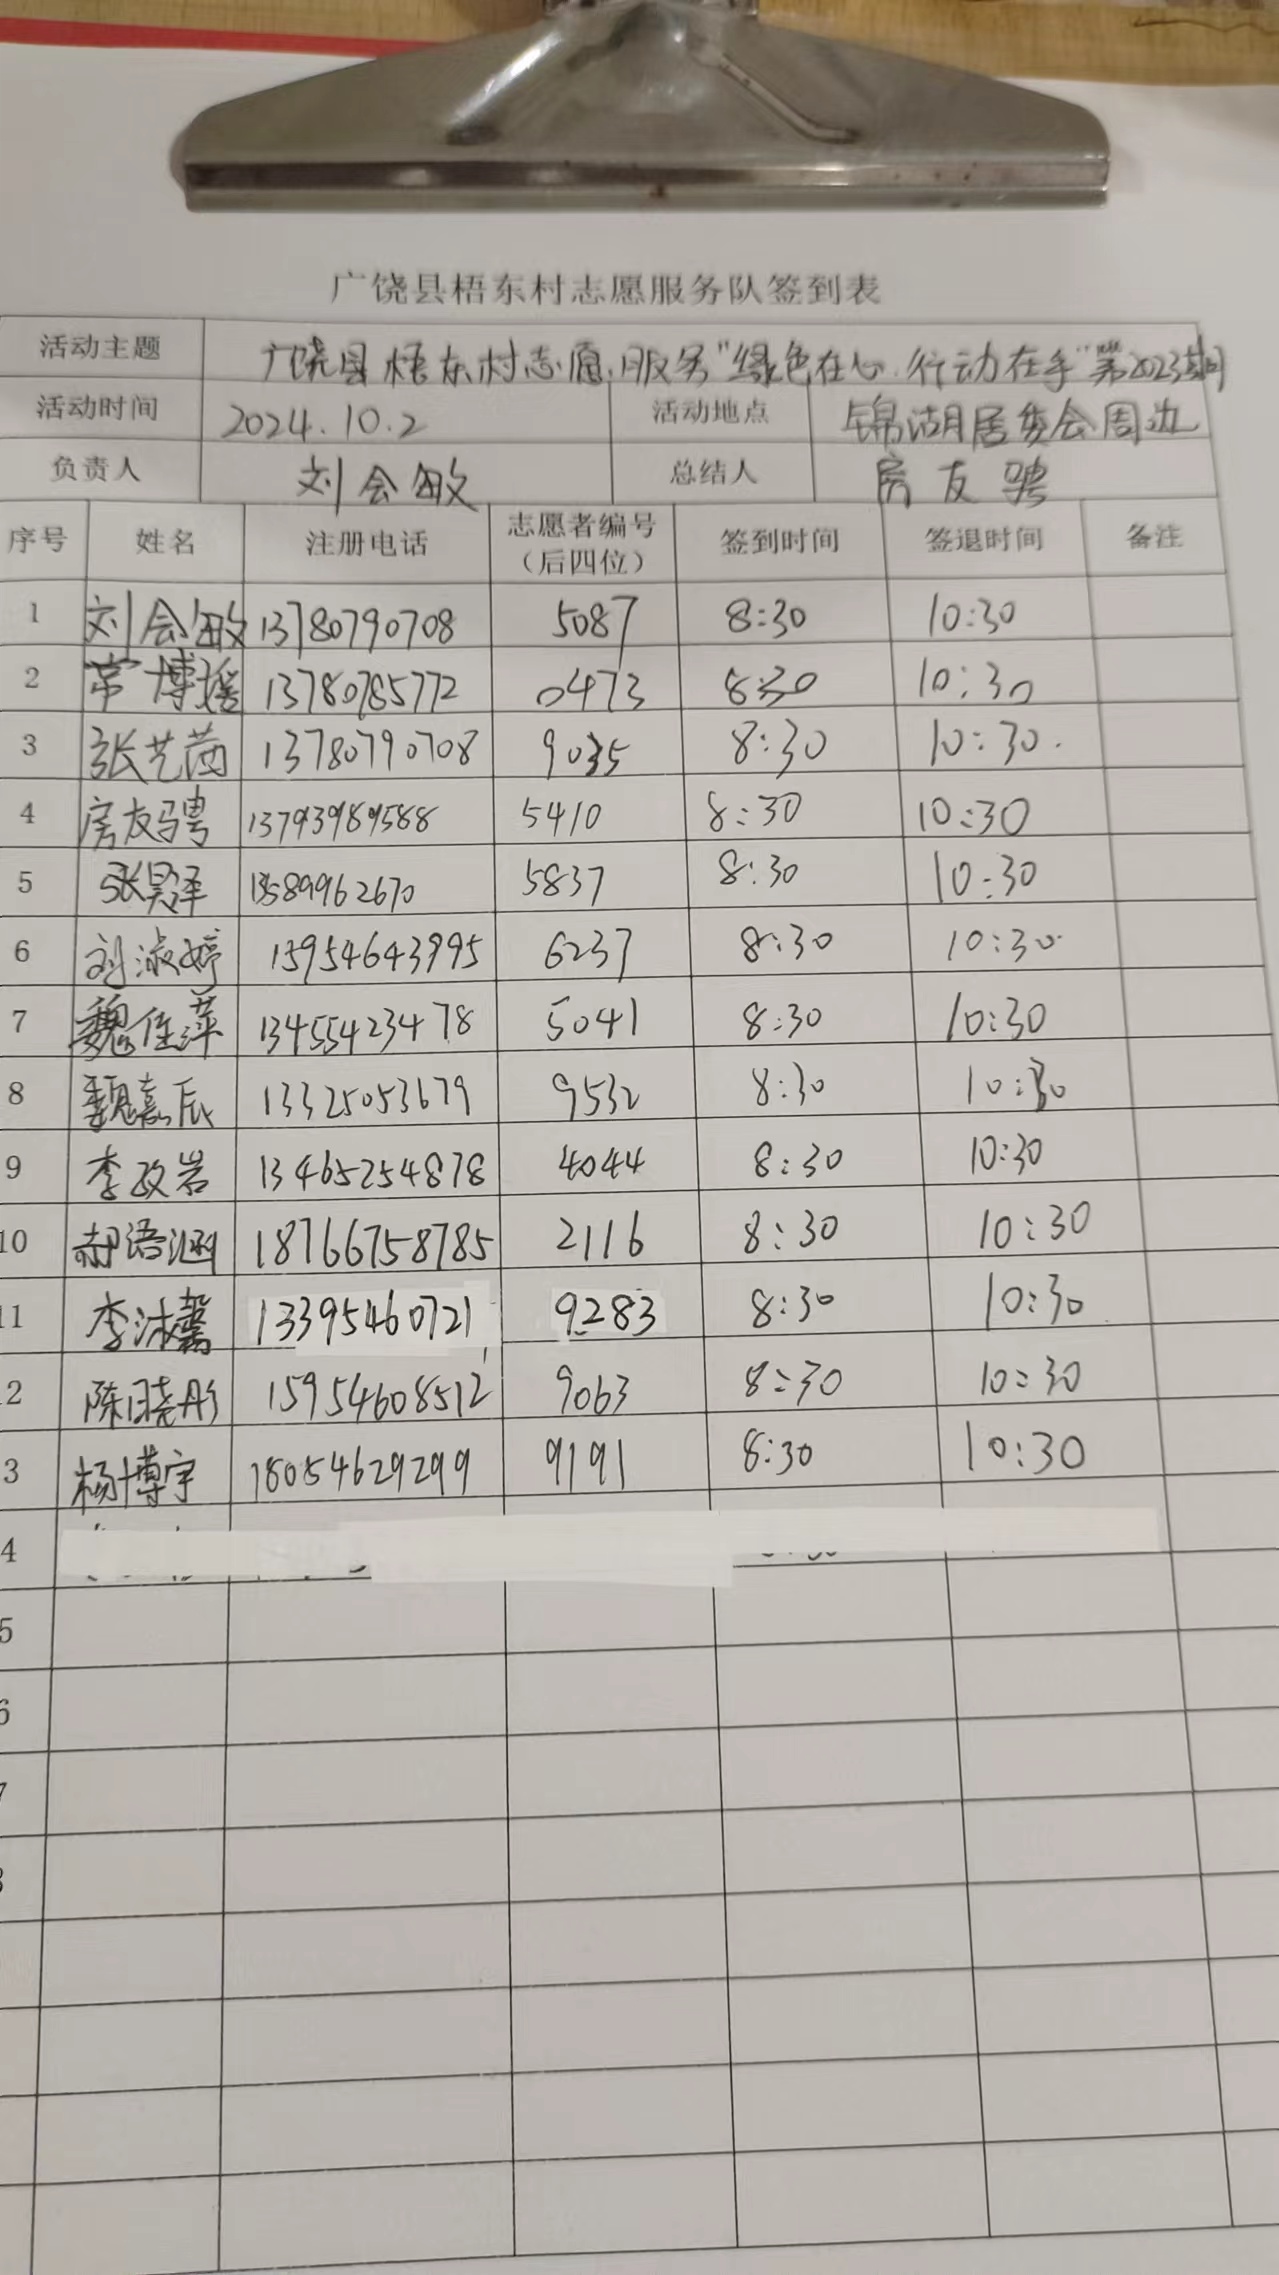 广饶县梧东村志愿服务队签到表
活动主题 广饶县梧东村志愿服务"绿色在心.行动在手"第2023期
活动时间 2024.10.2 活动地点 锦湖居委会周边
负责人 刘会敏 总结人 房友骋
序号 姓名 注册电话 志愿者编号（后四位） 签到时间 签退时间 备注
1 刘会敏 13780790708 5087 8:30 10:30
2 常博媛 13780785772 0473 8:30 10:30
3 张艺茵 13780790708 9035 8:30 10:30.
4 房友骋 13793989588 5410 8:30 10:30
5 张昊泽 13589962670 5837 8:30 10:30
6 刘淑婷 15954643995 6237 8:30 10:30
7 魏佳萍 13455423478 5041 8:30 10:30
8 魏嘉辰 13325053679 9532 8:30 10:30
9 李政岩 13465254878 4044 8:30 10:30
10 郝语涵 18766758785 2116 8:30 10:30
11 李沐馨 13395460721 9283 8:30 10:30
2 陈晓彤 15954608512 9063 8:30 10:30
3 杨博宇 18054629299 9191 8:30 10:30
4
5
6
7
8